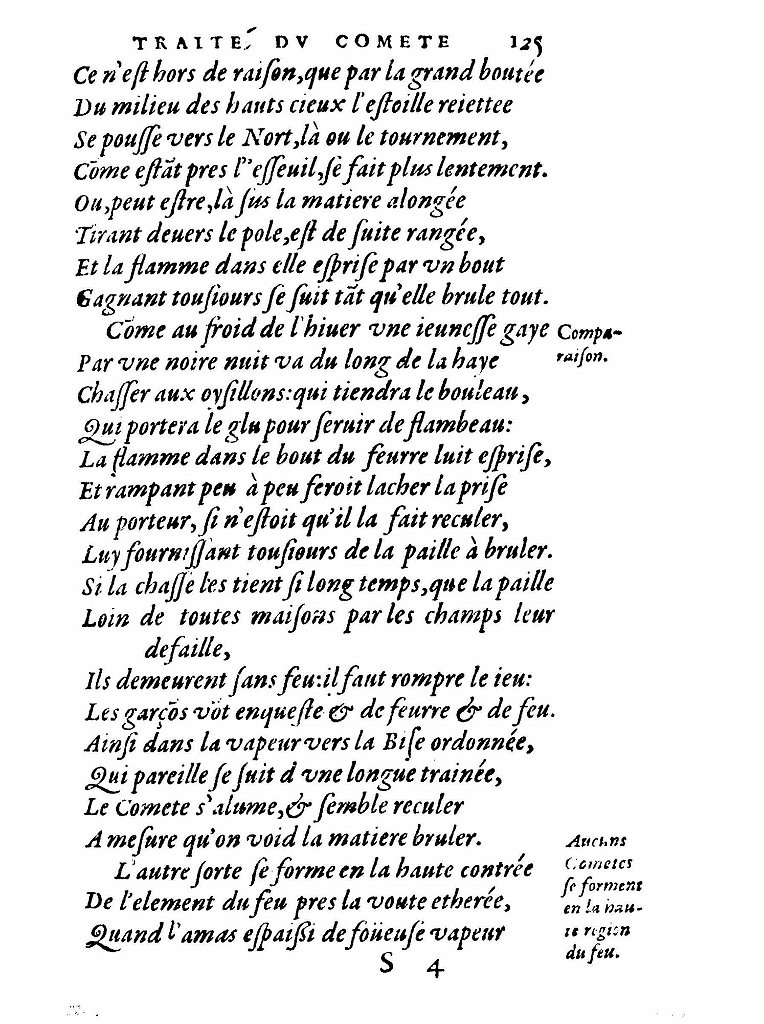 TRAITÉ DV COMETE 125
Ce n'eſt hors de raiſon, que par la grand boutée
Du milieu des hauts cieux l'eſtoille reiettee
Se pouſſe vers le Nort, là ou le tournement,
Cōme eſtãt pres l'eſſeuil, ſe fait plus lentement.
Ou, peut eſtre, là ſus la matiere alongée
Tirant deuers le pole, eſt de ſuite rangée,
Et la flamme dans elle eſpriſe par vn bout
Gagnant touſiours ſe ſuit tãt qu'elle brule tout.
Cōme au froid de l'hiuer vne ieuneſſe gaye
Compa-
raiſon.
Par vne noire nuit va du long de la haye
Chaſſer aux oyſillons: qui tiendra le bouleau,
Qui portera le glu pour ſeruir de flambeau:
La flamme dans le bout du feurre luit eſpriſe,
Et rampant peu à peu feroit lacher la priſe
Au porteur, ſi n'eſtoit qu'il la fait reculer,
Luy fourniſſant touſiours de la paille à bruler.
Si la chaſſe les tient ſi long temps, que la paille
Loin de toutes maiſons par les champs leur
defaille,
Ils demeurent ſans feu: il faut rompre le ieu:
Les garçōs vōt enqueſte & de feurre & de feu.
Ainſi dans la vapeur vers la Biſe ordonnée,
Qui pareille ſe ſuit d vne longue trainée,
Le Comete s'alume, & ſemble reculer
A meſure qu'on void la matiere bruler.
L'autre ſorte ſe forme en la haute contrée
De l'element du feu pres la voute etherée,
Quand l'amas eſpaiſſi de foüeuſe vapeur
Aucuns
Cometes
ſe forment
en la hau-
te region
du feu.
S 4